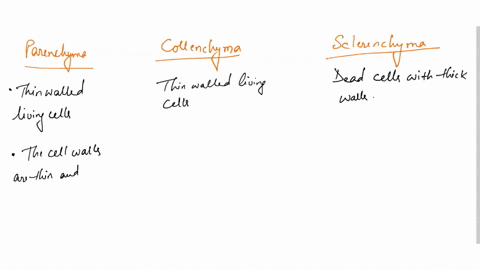 Parenchyma
• Thin walled
living cells
• The cell walls
are thin and
Collenchyma
Thin walled living
cells
Sclerenchyma
Dead cells with thick
walls.